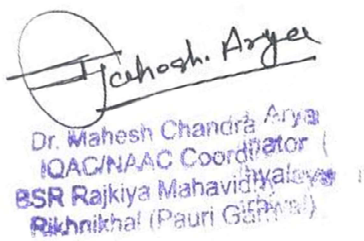 Mahesh. Arya
Dr. Mahesh Chandra Arya
IQAC/NAAC Coordinator (
BSR Rajkiya Mahavidhyalaya
Rikhnikhal (Pauri Garhwal)